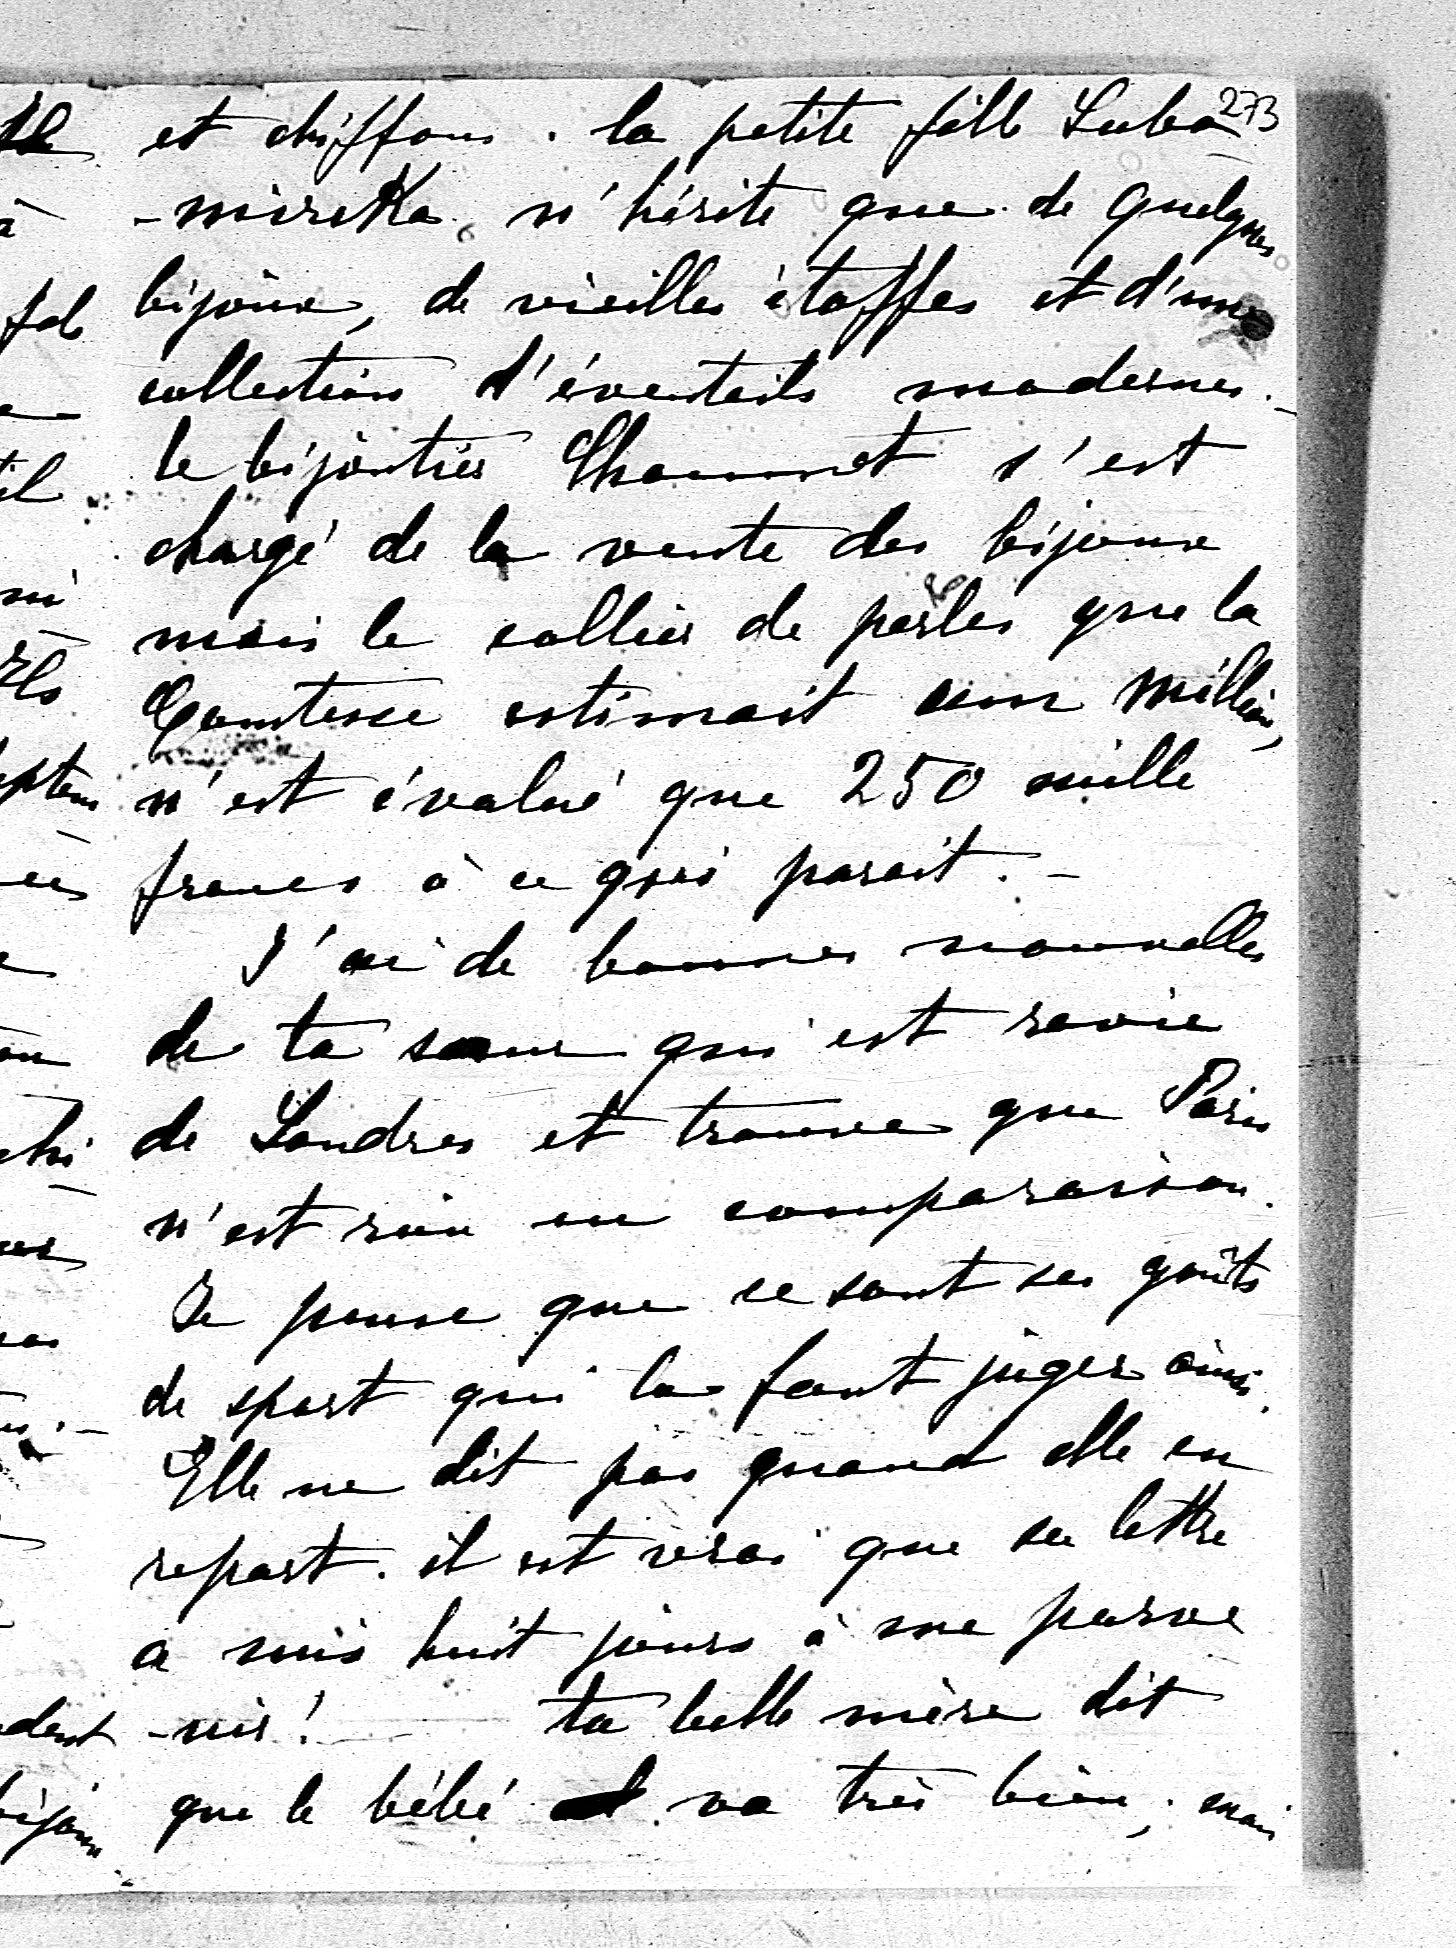 273
et chiffons. la petite fille Lubo
-mirska, n'hérite que de quelques
bijoux, de vieilles étoffes et d'une
collection d'éventails modernes. -
le bijoutier Chaumet s'est
chargé de la vente des bijoux
mais le collier de perles que la
Comtesse estimait un million,
n'est évalué que 250 mille
francs à ce qui parait. -
J'ai de bonnes nouvelles
de ta sœur qui est ravie
de Londres et trouve que Paris
n'est rien en comparaison.
Je pense que ce sont ses goûts
de sport qui la font juger ainsi.
Elle ne dit pas quand elle en
repart. il est vrai que sa lettre
a mis huit jours à me parve
-nir! - ta belle mère dit
que le bébé va très bien; mais